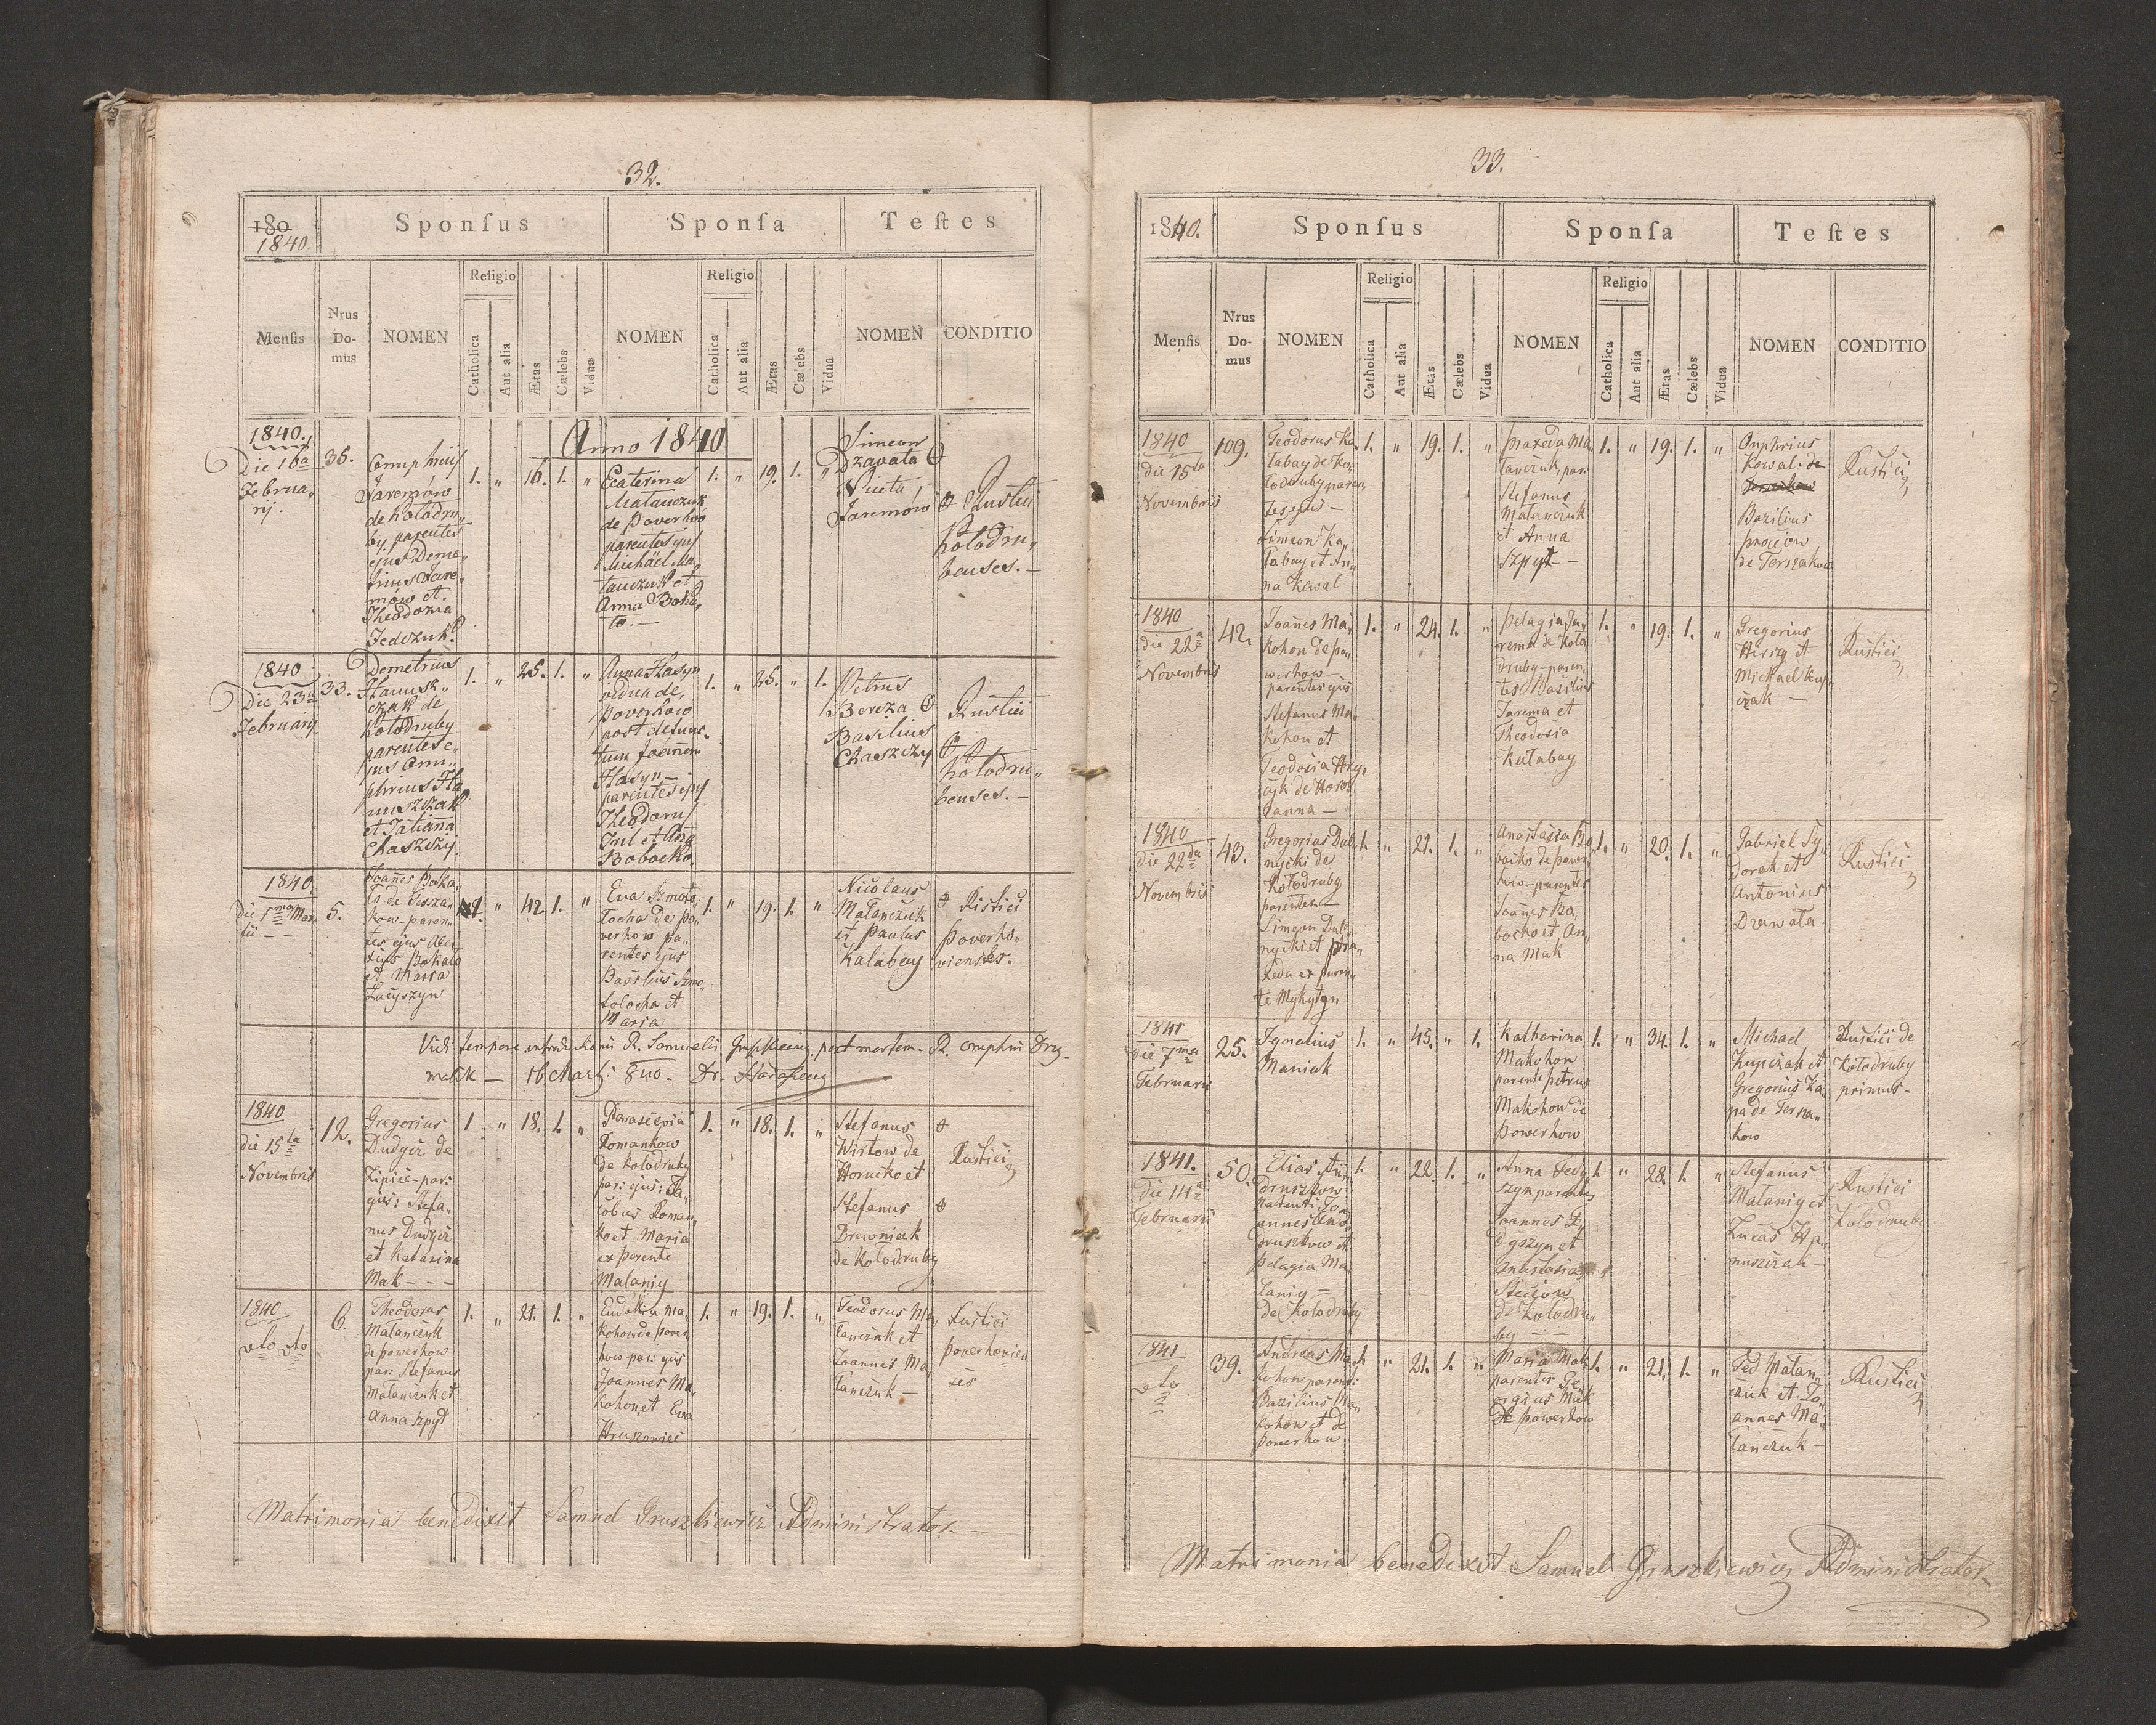 32.
180
1840.
Sponſus
Sponſa
Teſtes
Menſis
Nrus
Do-
mus
NOMEN
Religio
Catholica
Aut alia
Ætas
Cælebs
Vidua
NOMEN
Religio
Catholica
Aut alia
Ætas
Cælebs
Vidua
NOMEN
CONDITIO
Anno 1840
1840.
Die 16a
Februa„
rij.
36.
Jaremów
de Kołodru„
by parentes
ejus Deme„
trius Jare„
mów et
Theodozia
Fedczuk.
1. „ 16. 1. „
Ecaterina
Matanczuk
de Poverhów
parentes ejus
Michäel Ma„
tanczuk et
Anna Boha„
to. —
1. „ 19. 1. „
Simeon
Dzavata
Niceta
Jaremów
Rustici
Kołodru„
benses. —
1840
Die 23a
Februarij
33.
Demetrius
czak de
Kołodruby
parentes e„
jus Onu„
phrius Ha„
nuszczak
et Tatianna
Chaszczy.
1. „ 25. 1. „
Anna Hasyn
vidua de
Poverhow
post defunc„
tum Joannem
Hasyn —
parentes ejus
Theodorus
et Anna
Bobocko.
1. „ 25. „ 1.
Petrus
Bereza
Basilius
Chaszczy
Rustici
Kołodru„
benses. —
1840.
die 1ma Mar„
tii — —
5.
Joannes Boka„
to de
kow - paren„
tes ejus
Bokato
et Maria
Łucyszyn
„ 42. 1. „
Eva Szmoto„
łocha de Po„
verhow pa„
rentes ejus
Basilius Szmo„
tolocha et
Maria
1. „ 19. 1. „
Nicolaus
Matanczuk
et Paulus
Kalabay
Ristici
Poverho„
vienses.
Vidi tempore introductionis R. Samuelis post mortem R. Onuphrii
— 16 Martij 840. Dr.
1840
die 15ta
Novembris
12.
Gregorius
Dudycz de
Lipice - par:
ejus: Stefa„
nus Dudycz
et Katarina
Mak - - -
1 „ 18. 1. „
Parascevia
Romankow
de Kołodruby
par: ejus: Ja„
cobus Roman„
ko et Maria
ex parente
Malaniy
1. „ 18. 1. „
Stefanus
Wirstow de
Horucko et
Stefanus
Drewniak
de Kołodruby
Rustici
1840
dto dto
6.
Theodorus
Matanczuk
de Powerhow
par: Stefanus
Matanczuk et
Anna Szpyt
1. „ 21. 1. „
Eudokia Ma„
kohon de Pover„
how - par: ejus
Joannes Ma„
kohon et Eva
Hruszowiec
1. „ 19. 1. „
Teodorus Ma„
tanczuk et
Joannes Ma„
tanczuk —
Rustici
Poverhovien
ses
Matrimonia benedixit Samuel Gruszkiewicz Administrator. —
33.
1840.
Sponſus
Sponſa
Teſtes
Menſis
Nrus
Do-
mus
NOMEN
Religio
Catholica
Aut alia
Ætas
Cælebs
Vidua
NOMEN
Religio
Catholica
Aut alia
Ætas
Cælebs
Vidua
NOMEN
CONDITIO
1840
die 15ta
Novembris
109.
Teodorus Ka„
tabay de Ko„
łodruby paren„
tes ejus —
Simeon Ka„
tabay et An„
na Kowal
1. „ 19. 1. „
Praxeda Ma„
tanczuk, par:
Stefanus
Matanczuk
et Anna
Szpyt —
1. „ 19. 1. „
Onphrius
Kowal de
Bazilius
Procjow
de Terszakow
Rustici
1840
die 22a
Novembris
42.
Joannes Ma„
kohon de Po„
werhow
parentes ejus
Stefanus Ma„
kohon et
Teodosia Hry„
cyk de Horo„
żanna —
1. „ 24. 1. „
Pelagia Ja„
rema de Koło„
druby - paren„
tes Basilius
Jarema et
Theodosia
Kułabay
1. „ 19. 1. „
Gregorius
Hirszy et
Michael Kup„
czak —
Rustici
1840
die 22da
Novembris
43.
Gregorius Dub„
nycki de
Kołodruby
parentes
Simeon Dub„
nycki et Pra„
xeda ex paren„
te Mykytyn
1. „ 21. 1. „
Anastasia Bo„
bocko de Power„
how - parentes
Joannes Bo„
bocko et An„
na Mak
1. „ 20. 1. „
Gabriel Sy„
dorak et
Antonius
Dzawata
Rustici
1841
die 7ma
Februarii
25.
Ignatius
Maniak
1. „ 45. „ 1.
Katharina
Makohon
parents Petrus
Makohon de
Powerhow
1. „ 34. 1. „
Michael
Kupczak et
Gregorius Ka„
pa de Tersza„
kow
Rustici de
Kołodruby
primus -
1841.
Die 14a
Februarii
50.
Elias An„
druszkow
parents: Jo„
annes An„
druszkow et
Pelagia Ma„
laniy —
de Kołodruby
1. „ 22. 1. „
Anna Fedy„
szyn parentes
Joannes Fe„
dyszyn et
Anastasia
Steciow
de Kołodru„
by — —
1. „ 28. 1. „
Stefanus
Malaniy et
Lucas Ha„
nuszczak —
Rustici
Kołodruby
1841
dto
39.
Andreas Ma„
kohon parents:
Bazilius Ma„
kohon et de
Powerhow
1. „ 21. 1. „
Maria Mak
parentes Ge„
orgius Mak
de Powerhow
1. „ 21. 1. „
Fed Matan„
czuk et Jo„
annes Ma„
tanczuk —
Rustici
Matrimonia benedixit Samuel Gruszkiewicz Administrator —